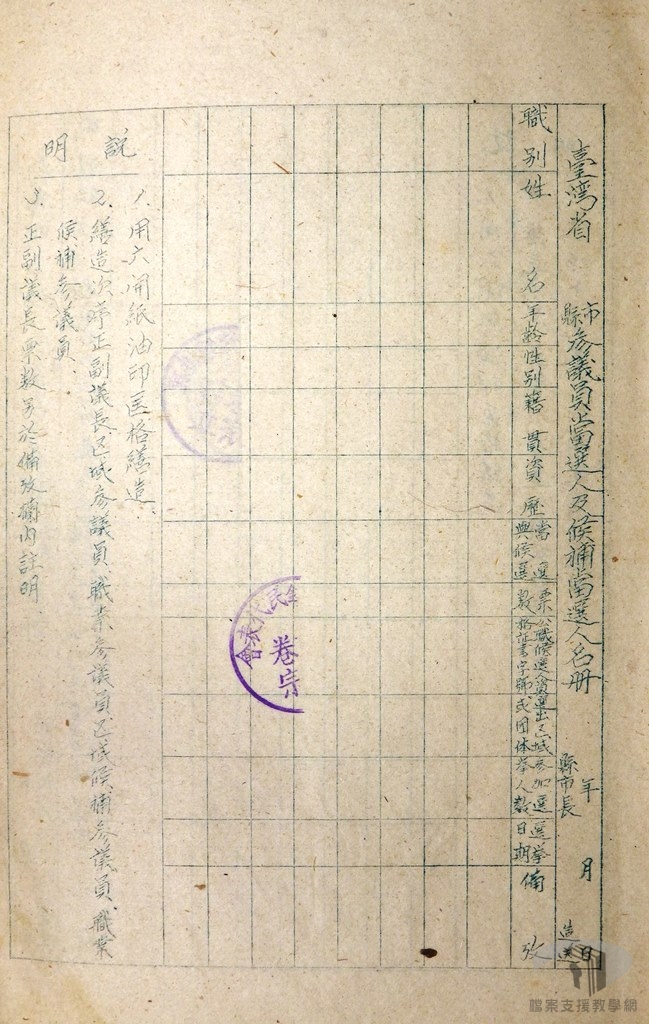 臺灣省
縣市參議員當選人及候補當選人名冊
縣市長
年 月 日 造送
職別
姓名
年齡
性別
籍貫
資歷
當選與候選票數
公職候選人資格証書字號
選出區域或団体
參加選舉人數
選舉日期
備攷
說明
1. 用六開紙油印匡格繕造
2. 繕造次序正副議長區域參議員、職業參議員區域候補參議員、職業
候補參議員、
3. 正副議長票數另於備攷欄內註明
民代表會
卷宗
檔案支援教學網